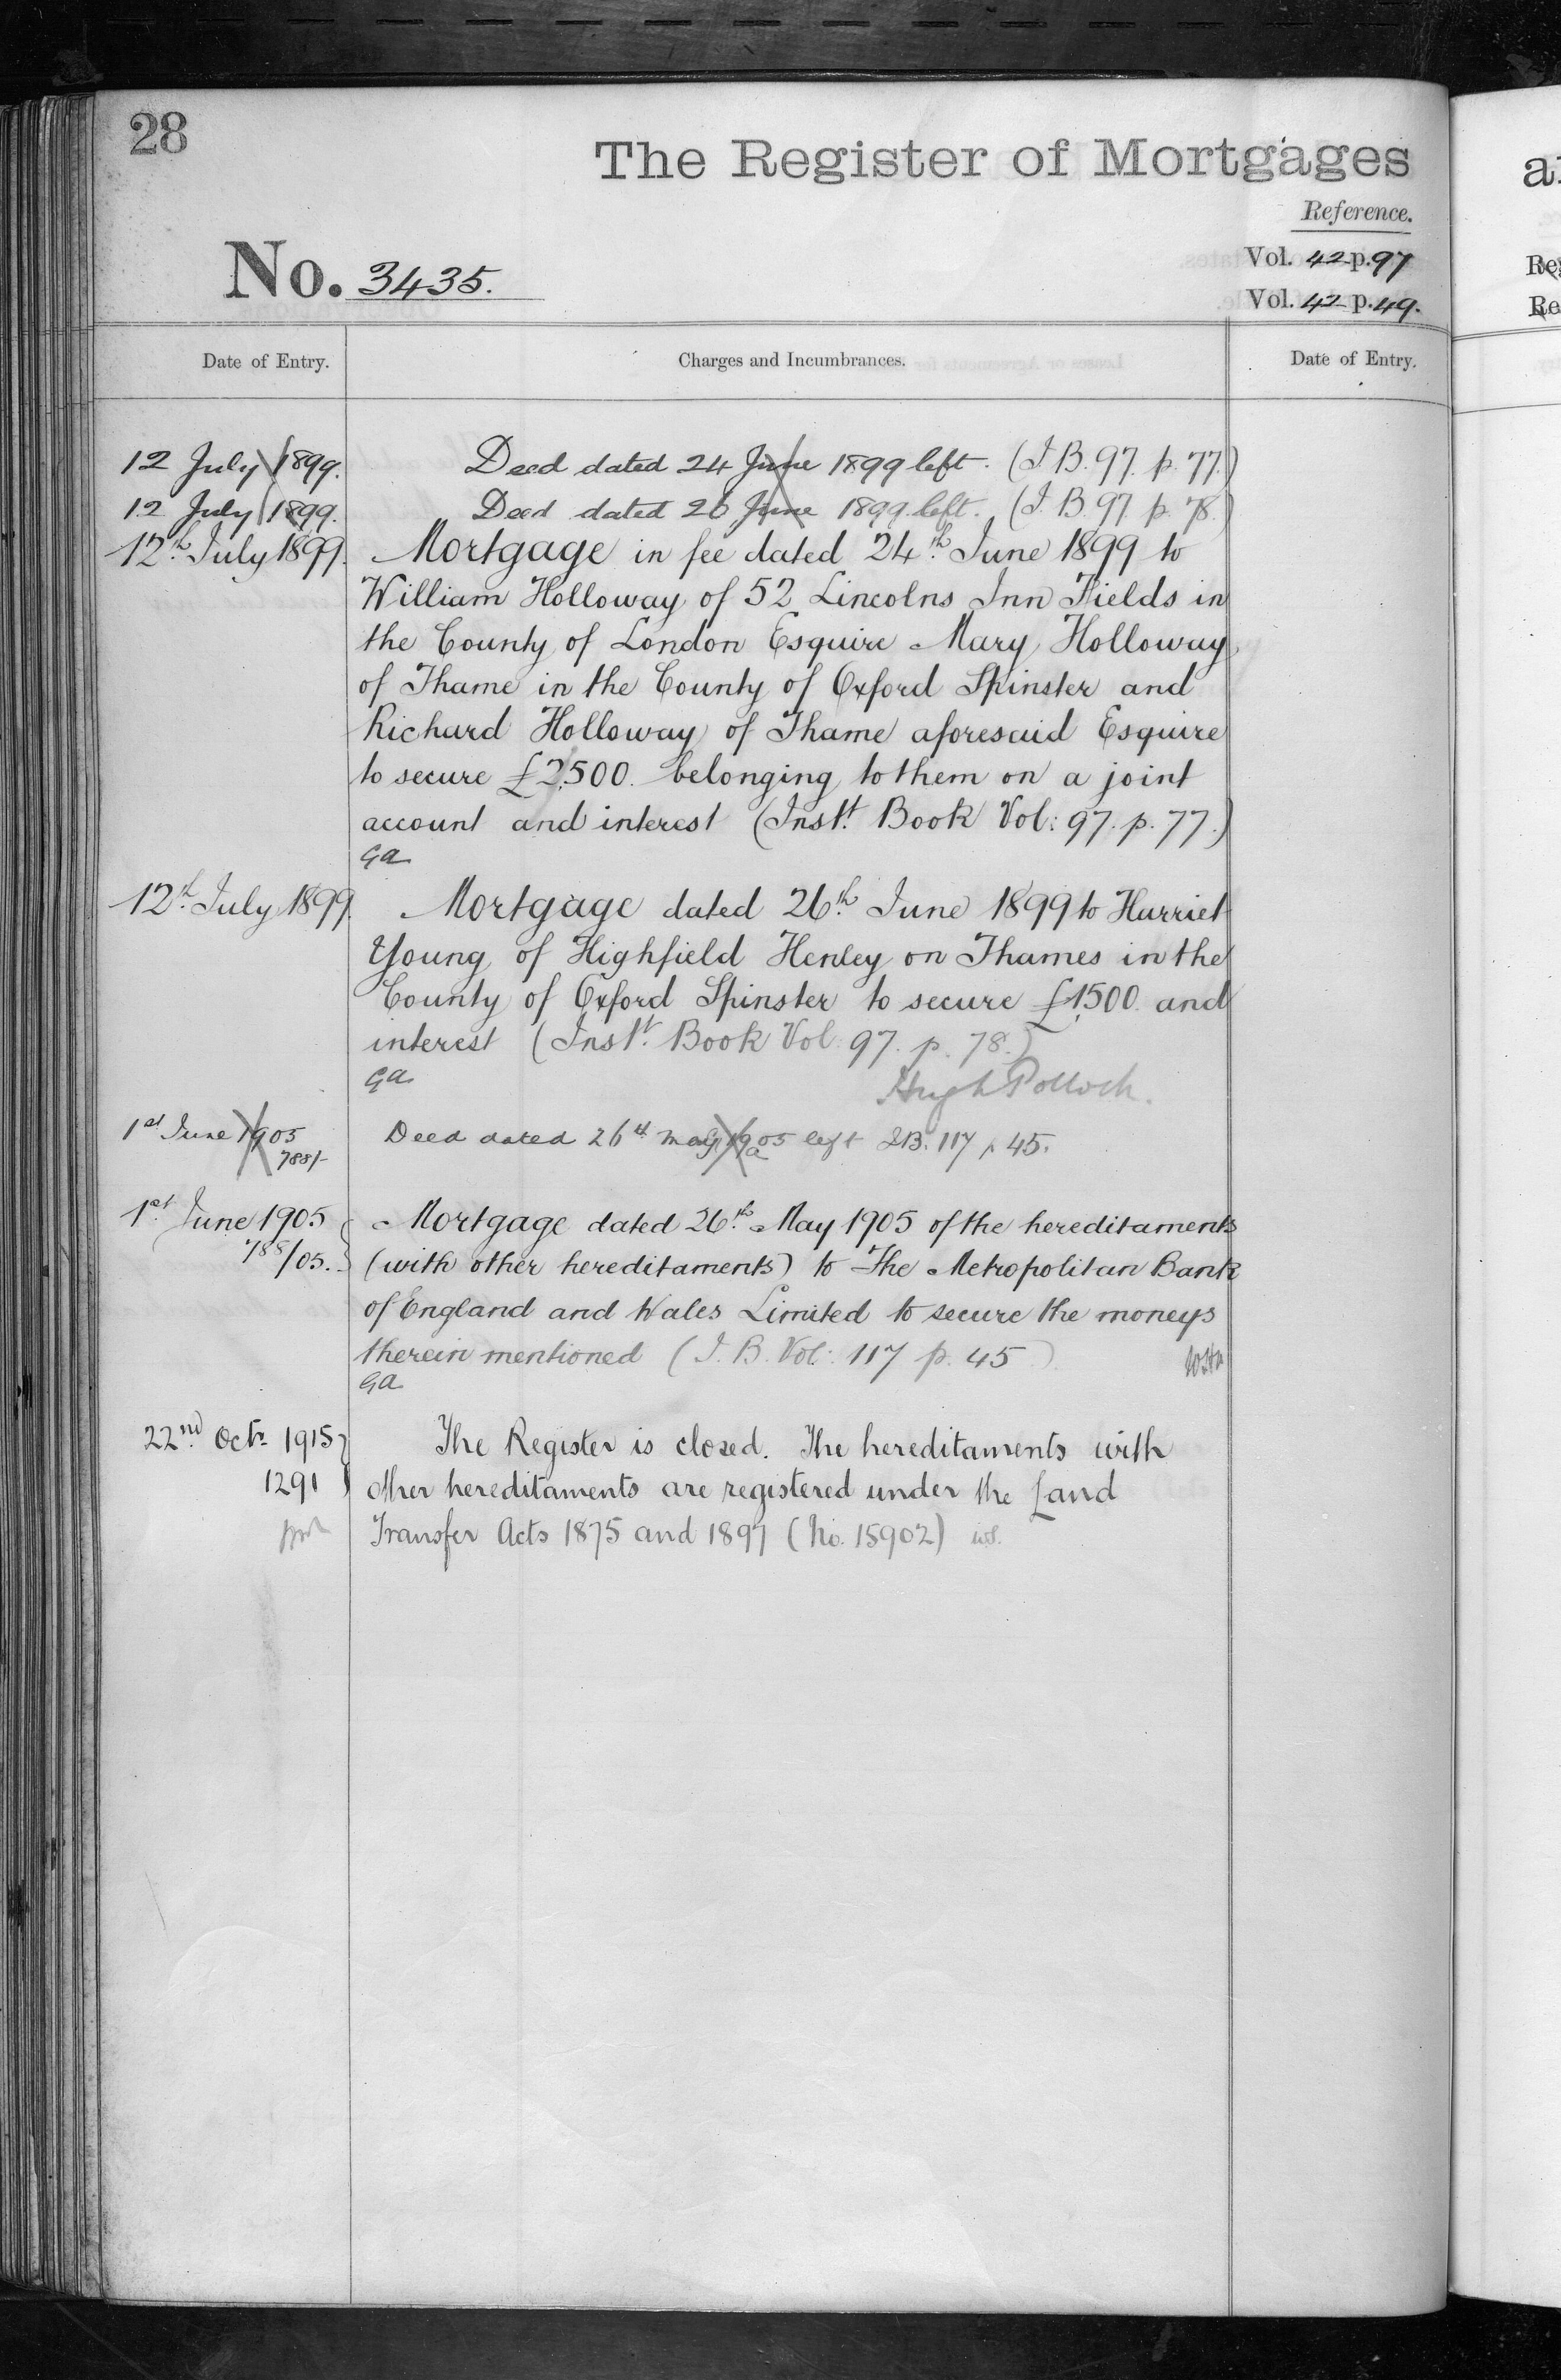 28
The Register of Mortgages
Reference.
No. 3435.
Vol. 42 p. 97
Vol. 42 p. 49.
Date of Entry. Charges and Incumbrances. Date of Entry.
12 July 1899. Deed dated 24 June 1899 left. (I.B. 97. p. 77.)
12 July 1899. Deed dated 26 June 1899 left. (I.B. 97 p. 78.)
12th July 1899. Mortgage in fee dated 24th June 1899 to
William Holloway of 52 Lincolns Inn Fields in
the County of London Esquire Mary Holloway
of Thame in the County of Oxford Spinster and
Richard Holloway of Thame aforesaid Esquire
to secure £2,500. belonging to them on a joint
account and interest (Inst.t Book Vol: 97. p. 77.)
Ga
12th July 1899. Mortgage dated 26th June 1899 to Harriet
Young of Highfield Henley on Thames in the
County of Oxford Spinster to secure £1,500. and
interest (Inst.t Book Vol 97. p. 78.)
Ga
Hugh Pollock.
1st June 1905 Deed dated 26th May 1905 left I.B. 117 p 45.
788/-
1st June 1905 Mortgage dated 26th May 1905 of the hereditaments
788/05. (with other hereditaments) to The Metropolitan Bank
of England and Wales Limited to secure the moneys
therein mentioned (I.B. Vol: 117 p. 45)
Ga
22nd Octr 1915 The Register is closed. The hereditaments with
1291 other hereditaments are registered under the Land
Transfer Acts 1875 and 1897 (No. 15902)